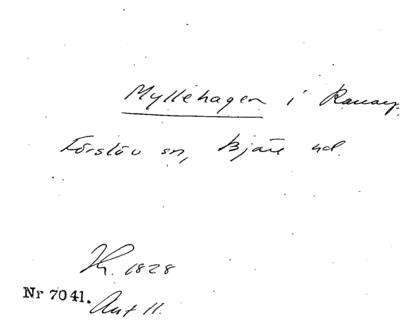 Myllehagen i
Förslöv sn, Bjäre hd.
Kr. 1828
Nr 7041.
Akt 11.